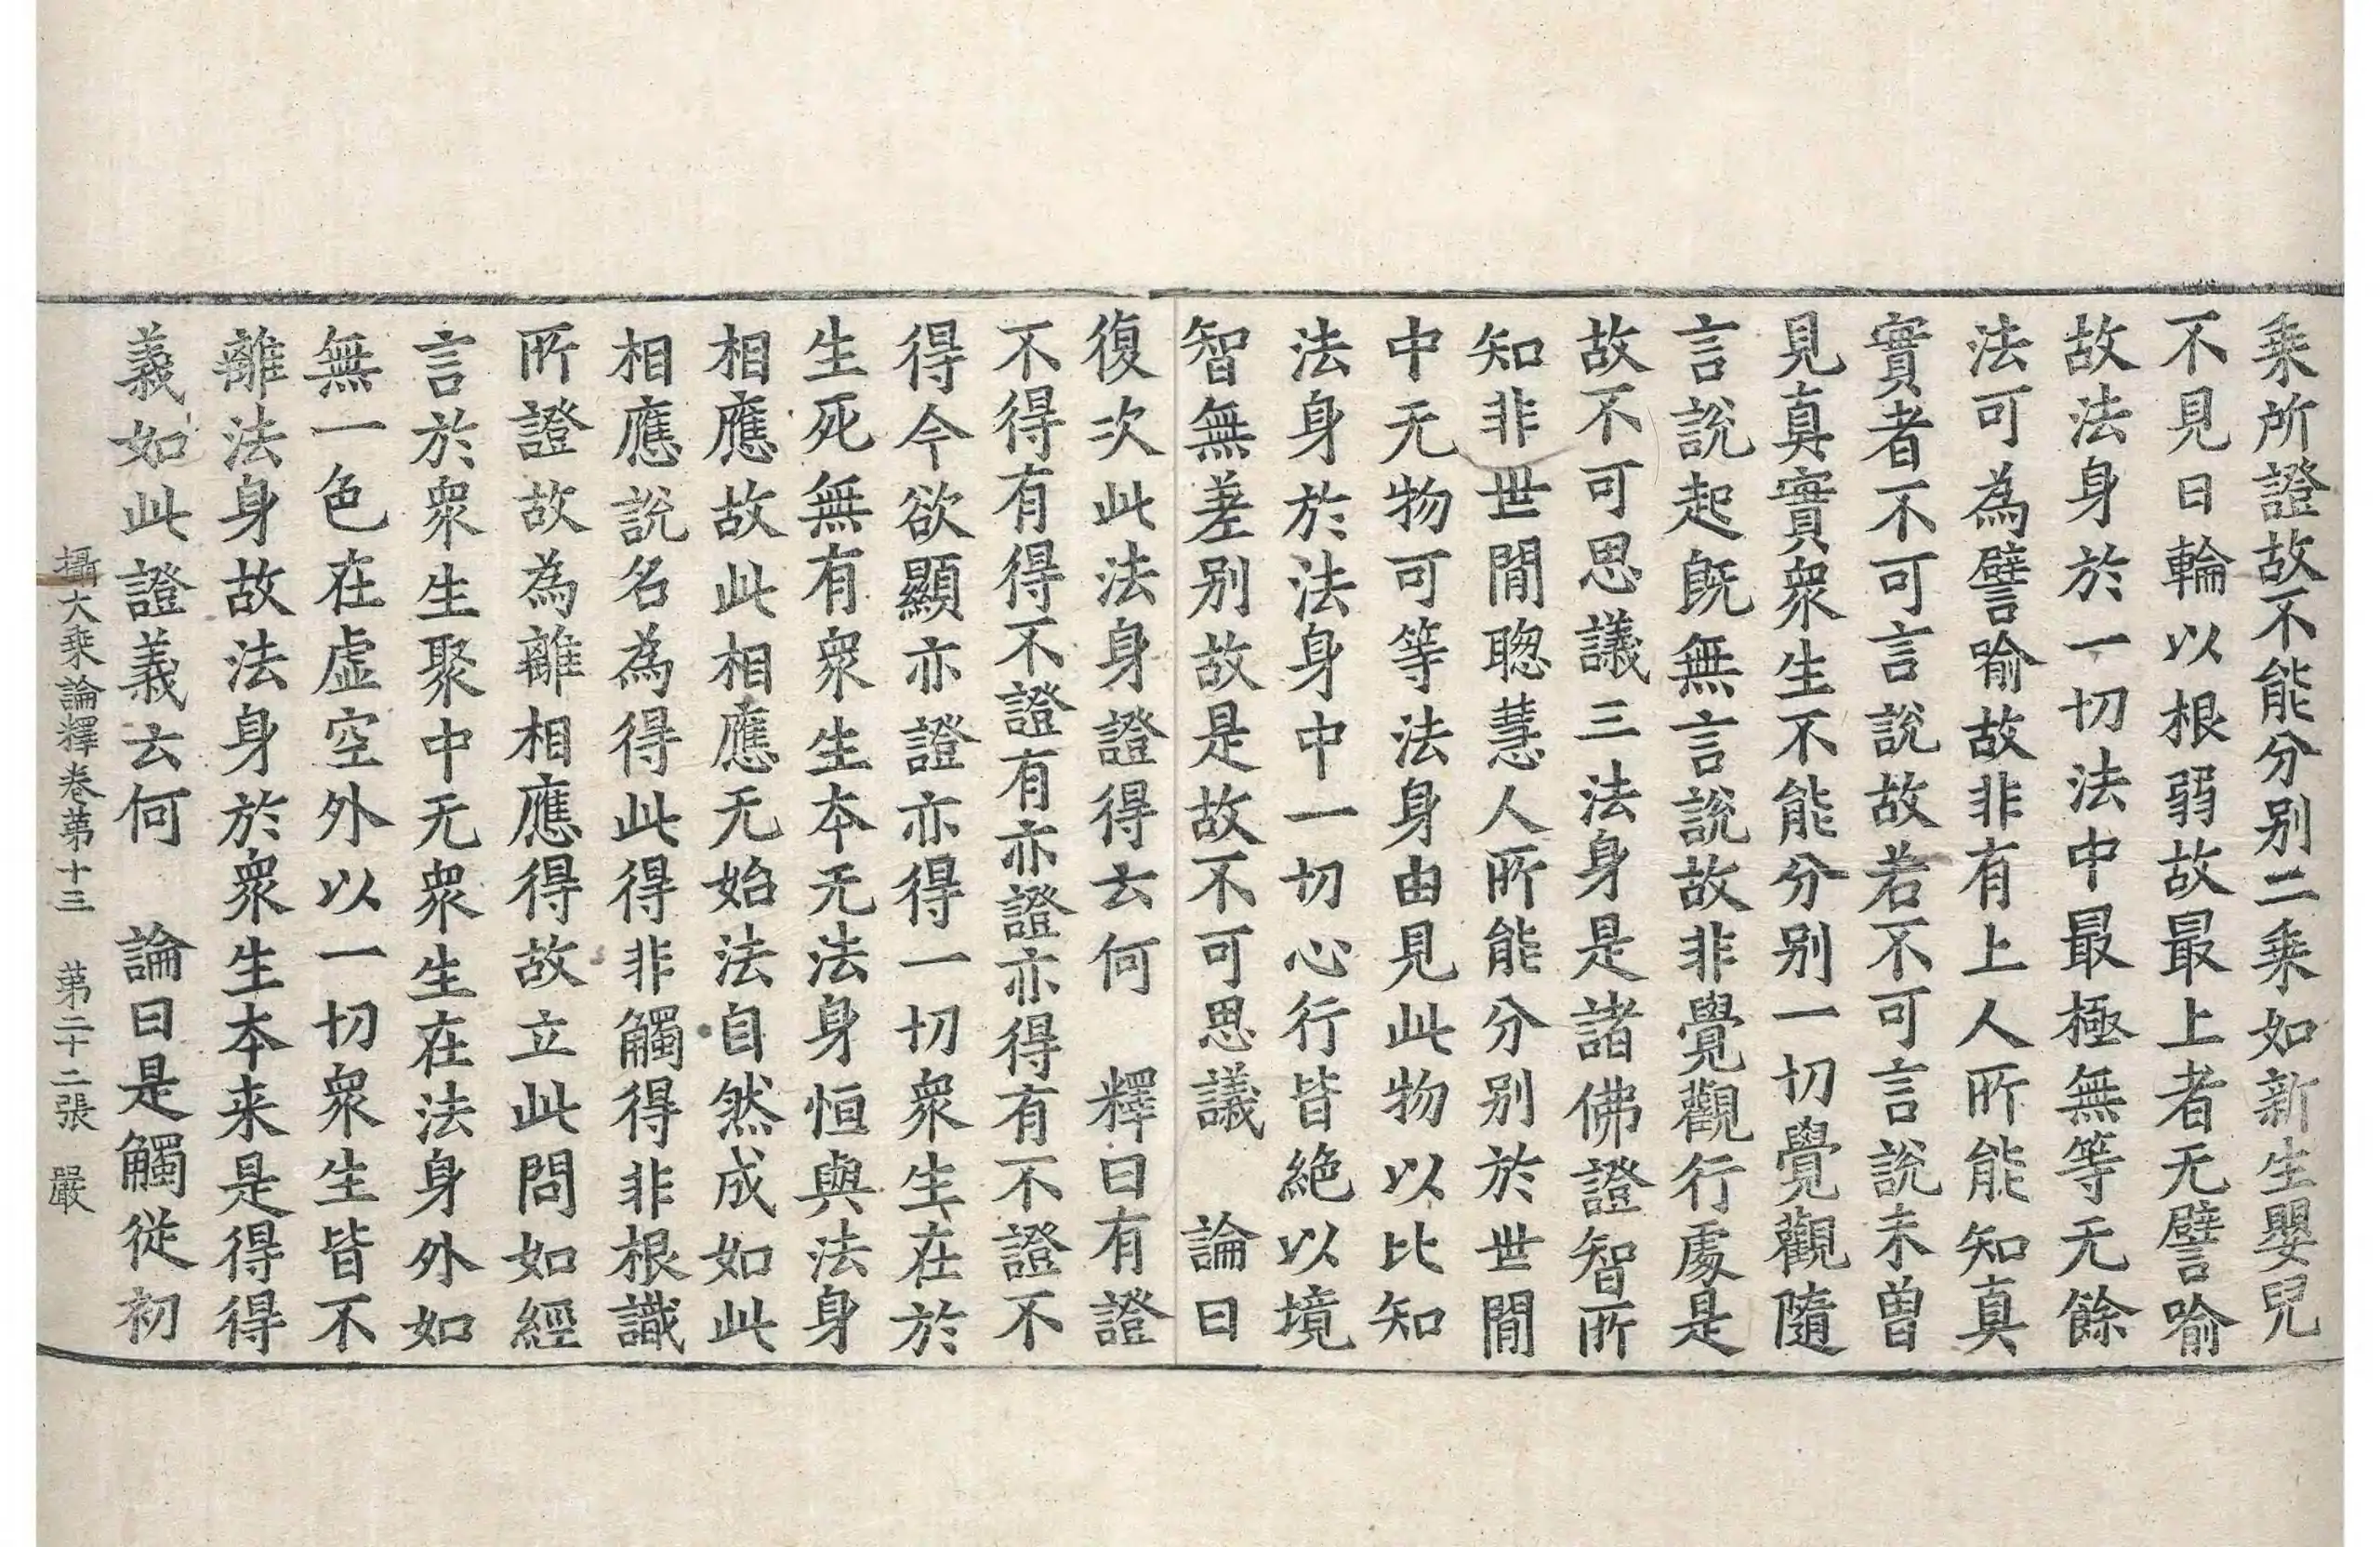 乘所證故不能分别二乘如新生嬰兒
不見日輪以根弱故最上者无譬喻
故法身於一切法中最極無等无餘
法可為譬喻故非有上人所能知真
實者不可言說故若不可言說未曾
見真實衆生不能分别一切覺觀隨
言說起旣無言說故非覺觀行處是
故不可思議三法身是諸佛證智所
知非世間聰慧人所能分别於世間
中无物可等法身由見此物以比知
法身於法身中一切心行皆絶以境
智無差别故是故不可思議　論曰
復次此法身證得云何　釋曰有證
不得有得不證有亦證亦得有不證不
得今欲顯亦證亦得一切衆生在於
生死無有衆生本无法身恒與法身
相應故此相應无始法自然成如此
相應說名為得此得非觸得非根識
所證故為離相應得故立此問如經
言於衆生聚中无衆生在法身外如
無一色在虛空外以一切衆生皆不
離法身故法身於衆生本来是得得
義如此證義云何　論曰是觸從初
攝大乘論釋卷第十三　第二十二張　嚴